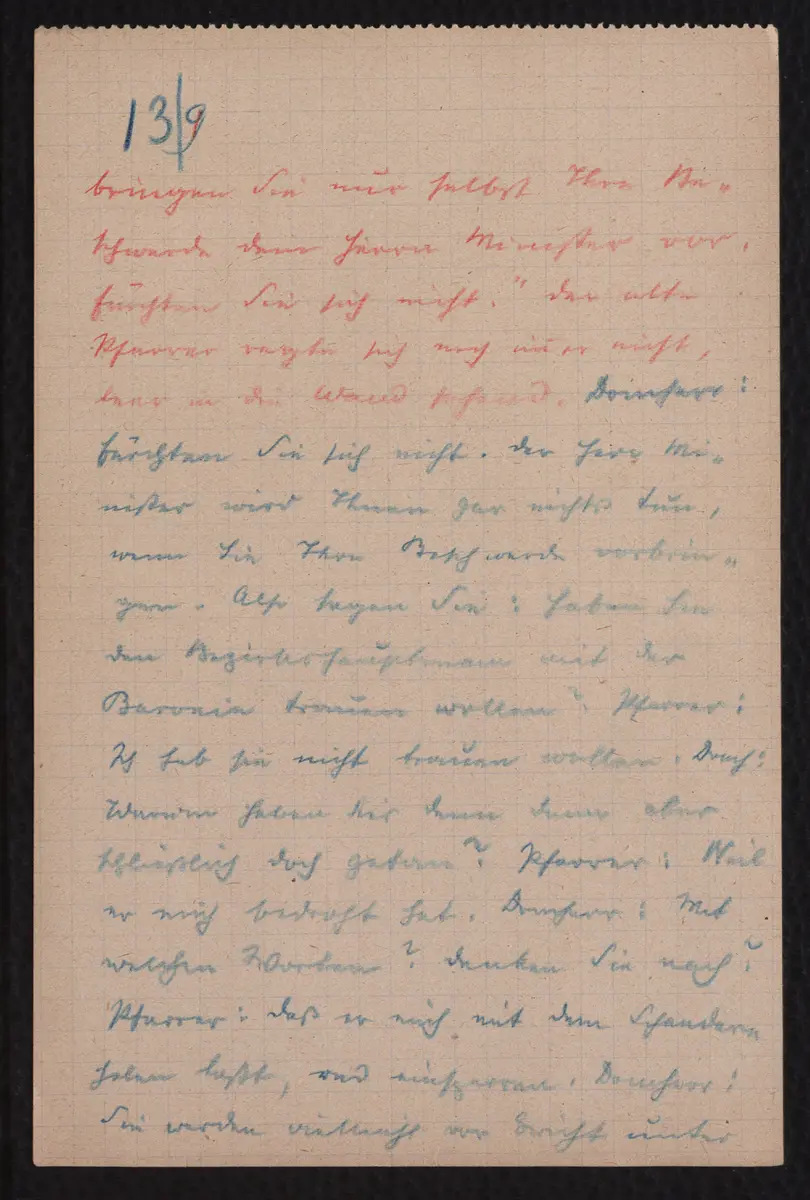 13/9
bringen Sie nur selbst Ihre Be-
schwerde dem Herrn Minister vor.
Fürchten Sie sich nicht." Der alte
Pfarrer regte sich noch immer nicht,
leer in die Wand sehend. Domherr:
Fürchten Sie sich nicht. Der Herr Mi-
nister wird Ihnen gar nichts tun,
wenn Sie Ihre Beschwerde vorbrin-
gen. Also sagen Sie: haben Sie
den Bezirkshauptmann mit der
Baronin trauen wollen? Pfarrer:
Ich hab sie nicht trauen wollen. Domh:
Warum haben Sies denn dann aber
schließlich doch getan? Pfarrer: Weil
er mich bedroht hat. Domherr: Mit
welchen Worten? Denken Sie nach!
Pfarrer: Daß er mich mit dem Schandarm
holen laßt, und einsperren. Domherr:
Sie werden vielleicht vor Gericht unter